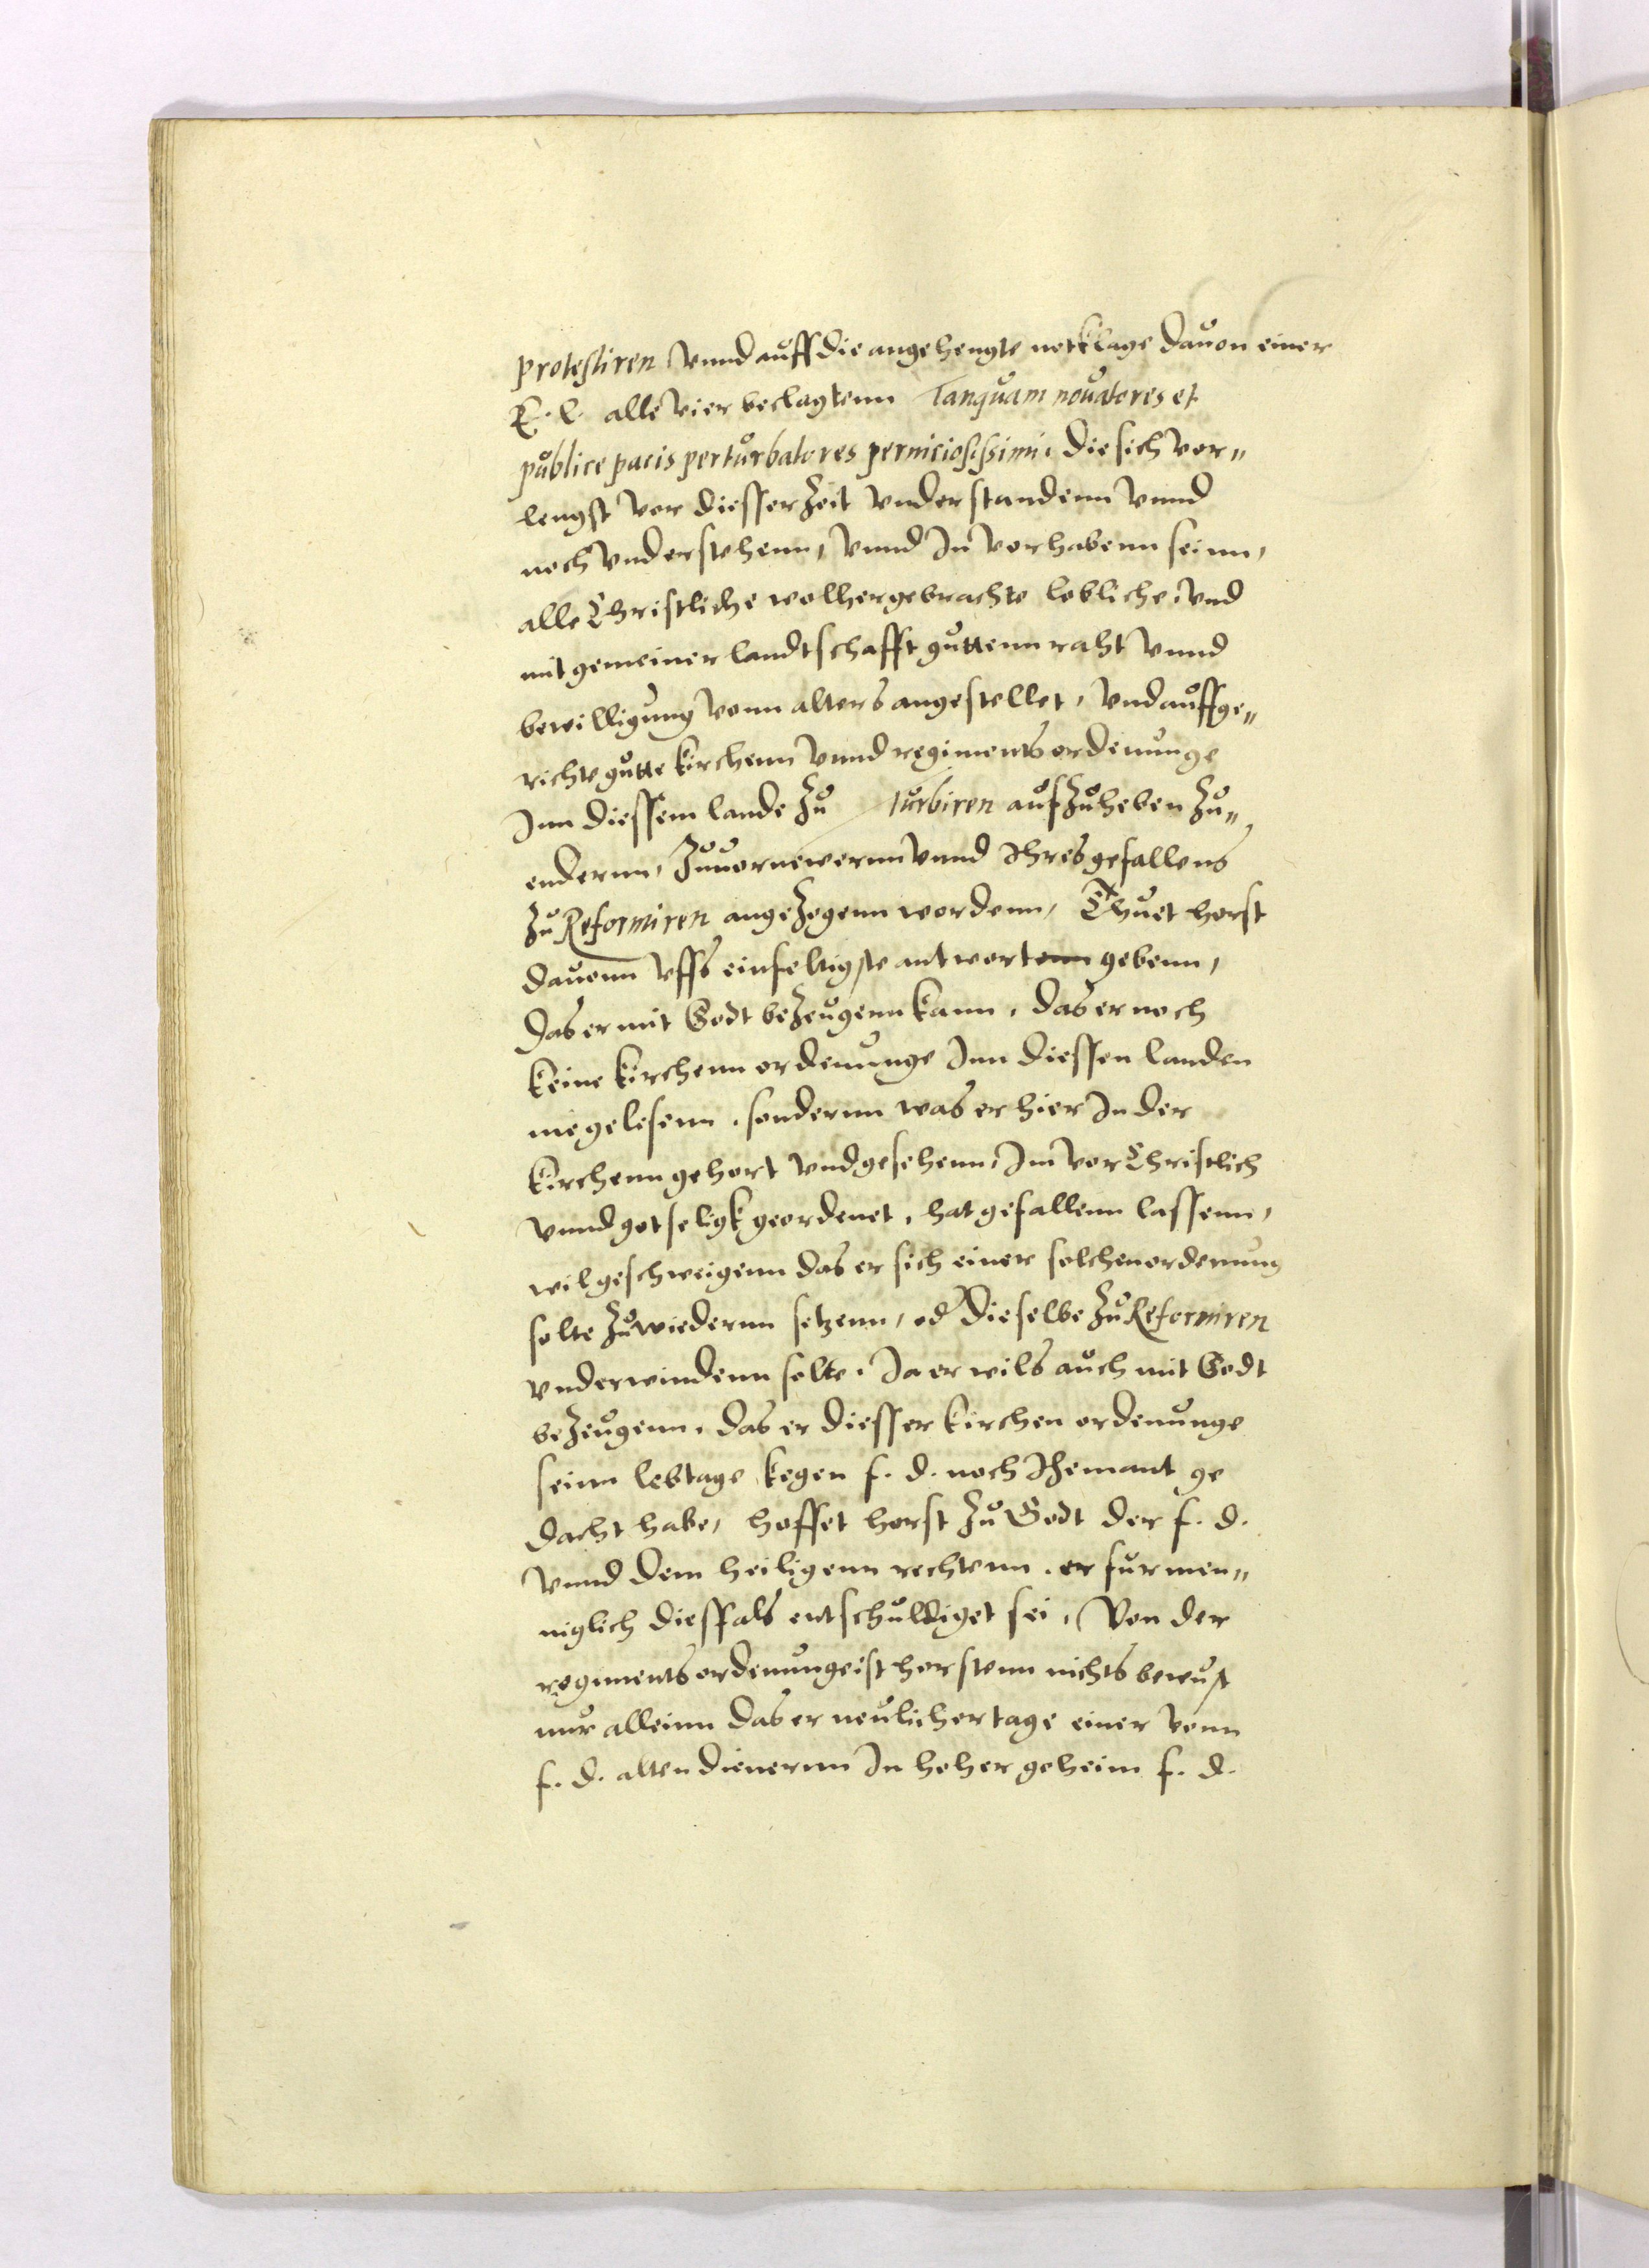 protestiren vnnd auff die angehengte notklage dauon einer
E. l. alle vier beclagtenn Tanquam nouatores et
publice pacis perturbatores perniciosissimi. die sich vor„
lengst vor diesser Zeit vnderstandenn vnnd
noch vnderstehenn, vnnd In vorhabenn seinn,
alle Christliche wolhergebrachte lobliche. vnd
mit gemeiner landtschafft guttenn raht vnnd
bewilligung vonn alters angestellet, vnd auffge„
richte gutte kirchenn vnnd regiments ordenunge
Inn diessem lande Zu turbiren aufZuheben Zu„
endernn, Zuuornewernn vnnd Ihres gefallens
Zu Reformiren angeZogenn wordenn, Thuet horst
dauonn vffs einfeltigste antwortenn gebenn,
Das er mit Godt beZeugenn kann, das er noch
keine kirchenn ordenunge Inn diessen landen
nie gelesenn. sondernn was er hier In der
kirchenn gehort vnd gesehenn, Im vor Christlich
vnnd gotseligk geordenet, hat gefallenn lassenn,
wil geschweigenn das er sich einer solchen ordenung
solte Zuwiedernn setzenn, od dieselbe Zu Reformiren
vnderwindenn solte. Ja er wils auch mit Godt
beZeugenn, das er diesser kirchen ordenunge
seinn lebtage kegen f. d. noch Ihemant ge
dacht habe, hoffet horst Zu Godt der f. d.
vnnd dem heiligenn rechtenn. er fur men„
niglich diesfals entschuldiget sei, Von der
regiments ordenunge ist horstenn nichts bewust
nur alleinn das er neulicher tage einer vonn
f. d. alten dienernn In hoher geheim f. d.